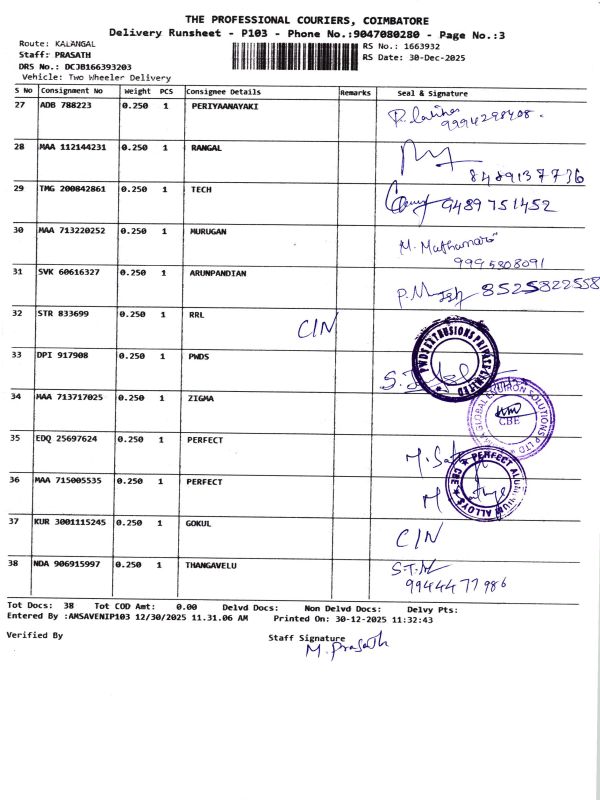 THE PROFESSIONAL COURIERS, COIMBATORE
Delivery Runsheet - P103 - Phone No.:9047080280 - Page No.:3
Route: KALANGAL
RS No.: 1663932
Staff: PRASATH
RS Date: 30-Dec-2025
DRS No.: DCJB166393203
Vehicle: Two Wheeler Delivery
S No Consignment No Weight PCS Consignee Details Remarks Seal & Signature
27 ADB 788223 0.250 1 PERIYAANAYAKI
9994298408.
28 MAA 112144231 0.250 1 RANGAL
8489137736
29 TMG 200842861 0.250 1 TECH
9489751452
30 MAA 713220252 0.250 1 MURUGAN
M. Mathanars
9995308091
31 SVK 60616327 0.250 1 ARUNPANDIAN
8525822558
32 STR 833699 0.250 1 RRL
C/N
33 DPI 917908 0.250 1 PWDS
PWDS EXTRUSIONS PRIVATE LIMITED
34 MAA 713717025 0.250 1 ZIGMA
GLOBAL ENVIRON SOLUTIONS P LTD
CBE
35 EDQ 25697624 0.250 1 PERFECT
36 MAA 715005535 0.250 1 PERFECT
PERFECT ALUMINIUM ALLOYS CBE
37 KUR 3001115245 0.250 1 GOKUL
C/N
38 NDA 906915997 0.250 1 THANGAVELU
9944477986
Tot Docs: 38 Tot COD Amt: 0.00 Delvd Docs: Non Delvd Docs: Delvy Pts:
Entered By :AMSAVENIP103 12/30/2025 11.31.06 AM Printed On: 30-12-2025 11:32:43
Verified By Staff Signature
M. Prasath